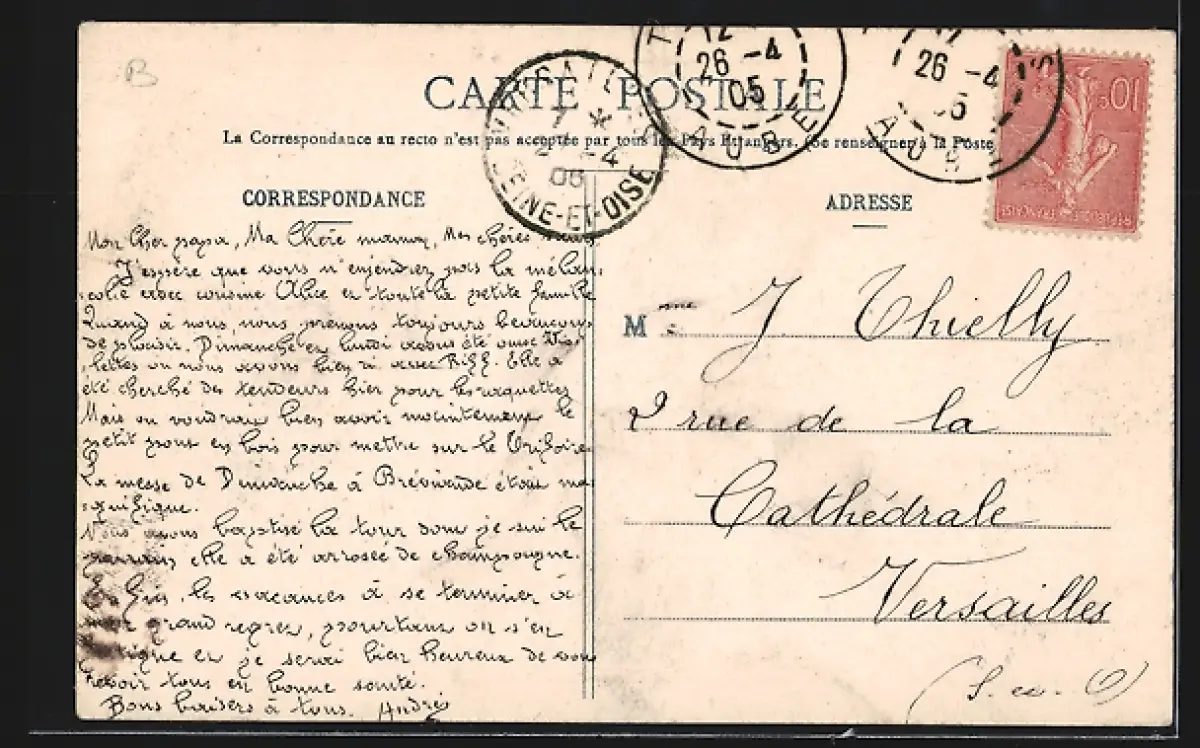 B
CARTE POSTALE
La Correspondance au recto n'est pas acceptée par tous les Pays Etrangers. (Se renseigner à la Poste
CORRESPONDANCE
ADRESSE
VERSAILLES
7 *
-4
05
SEINE-ET-OISE
12
26 -4
05
AUBE
26 -4
05
AUBE
10c
REPUBLIQUE FRANÇAISE
Mon Cher papa, Ma Chère maman, Mes chères sœurs
J'espère que vous n'enjendrez pas la mélan
colie avec Alice et toute la petite famille
Quand à nous, nous prenons toujours beaucoup
de plaisir. Dimanche et lundi avons été aux
où nous avons bien ri avec Riff. Elle a
été cherché des tendeurs hier pour les raquettes
Mais on voudrait bien avoir maintenant le
petit pont en bois pour mettre sur le
La messe de Dimanche à Bréviande était ma
gnifique.
Nous avons baptisé la tour dont je suis le
parrain, elle a été arrosée de champagne.
Enfin, les vacances à se terminer à
mon grand regret, pourtant on s'en
fatigue et je serai bien heureux de vous
revoir tous en bonne santé.
Bons baisers à tous. André
Mme J. Thielly
2 rue de la
Cathédrale
Versailles
(S. et. O)